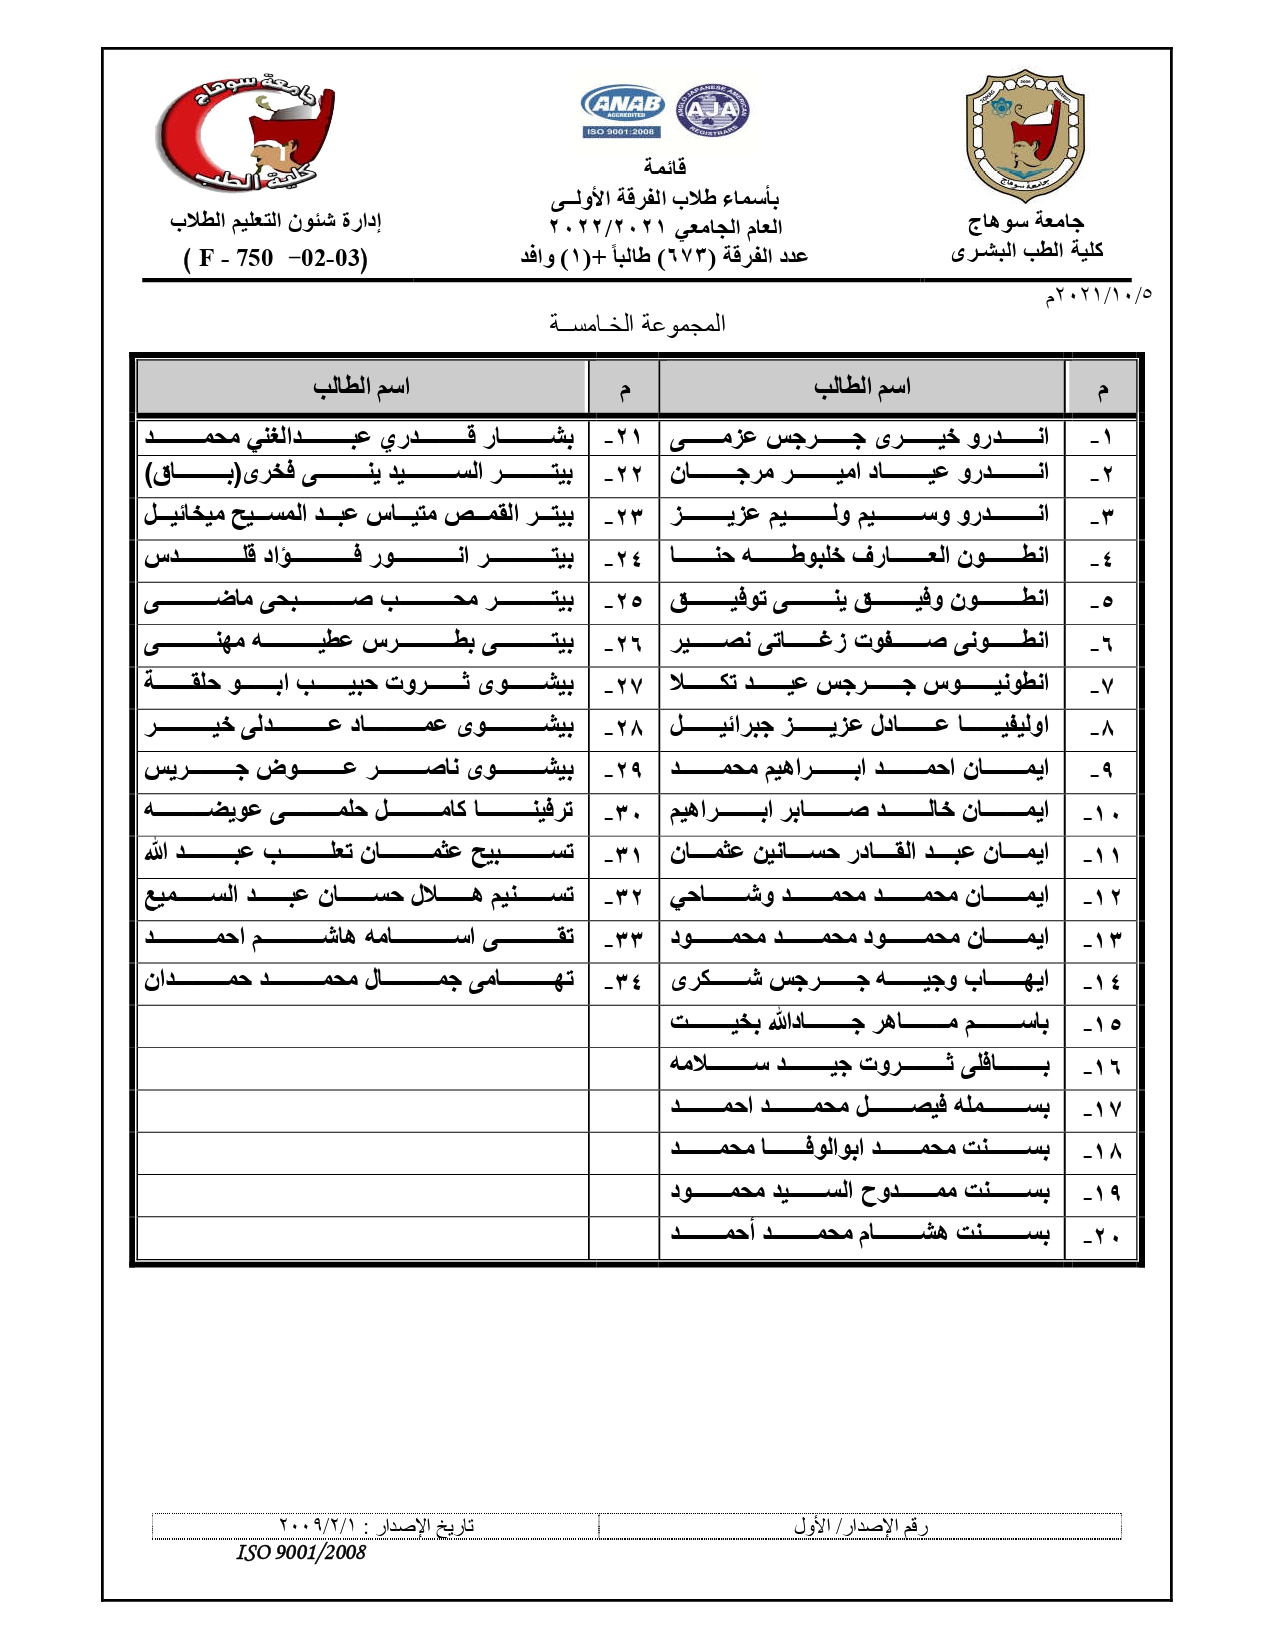 جامعة سوهاج
كلية الطب البشرى
ANAB
ACCREDITED
ISO 9001:2008
ANGLO JAPANESE AMERICAN
AJA
REGISTRARS
قائمة
بأسماء طلاب الفرقة الأولى
العام الجامعي ٢٠٢٢/٢٠٢١
عدد الفرقة (٦٧٣) طالباً +(١) وافد
جامعة سوهاج
كلية الطب
إدارة شئون التعليم الطلاب
( F - 750 -02-03)
٢٠٢١/١٠/٥م
المجموعة الخامسة
م اسم الطالب م اسم الطالب
١- اندرو خيرى جرجس عزمى ٢١- بشار قدري عبدالغني محمد
٢- اندرو عياد امير مرجان ٢٢- بيتر السيد ينى فخرى(باق)
٣- اندرو وسيم وليم عزيز ٢٣- بيتر القمص متياس عبد المسيح ميخائيل
٤- انطون العارف خلبوطه حنا ٢٤- بيتر انور فؤاد قلدس
٥- انطون وفيق ينى توفيق ٢٥- بيتر محب صبحى ماضى
٦- انطونى صفوت زغاتى نصير ٢٦- بيتى بطرس عطيه مهنى
٧- انطونيوس جرجس عيد تكلا ٢٧- بيشوى ثروت حبيب ابو حلقة
٨- اوليفيا عادل عزيز جبرائيل ٢٨- بيشوى عماد عدلى خير
٩- ايمان احمد ابراهيم محمد ٢٩- بيشوى ناصر عوض جريس
١٠- ايمان خالد صابر ابراهيم ٣٠- ترفينا كامل حلمى عويضه
١١- ايمان عبد القادر حسانين عثمان ٣١- تسبيح عثمان تعلب عبد الله
١٢- ايمان محمد محمد وشاحي ٣٢- تسنيم هلال حسان عبد السميع
١٣- ايمان محمود محمد محمود ٣٣- تقى اسامه هاشم احمد
١٤- ايهاب وجيه جرجس شكرى ٣٤- تهامى جمال محمد حمدان
١٥- باسم ماهر جادالله بخيت
١٦- بافلى ثروت جيد سلامه
١٧- بسمله فيصل محمد احمد
١٨- بسنت محمد ابوالوفا محمد
١٩- بسنت ممدوح السيد محمود
٢٠- بسنت هشام محمد أحمد
رقم الإصدار/ الأول تاريخ الإصدار : ٢٠٠٩/٢/١
ISO 9001/2008